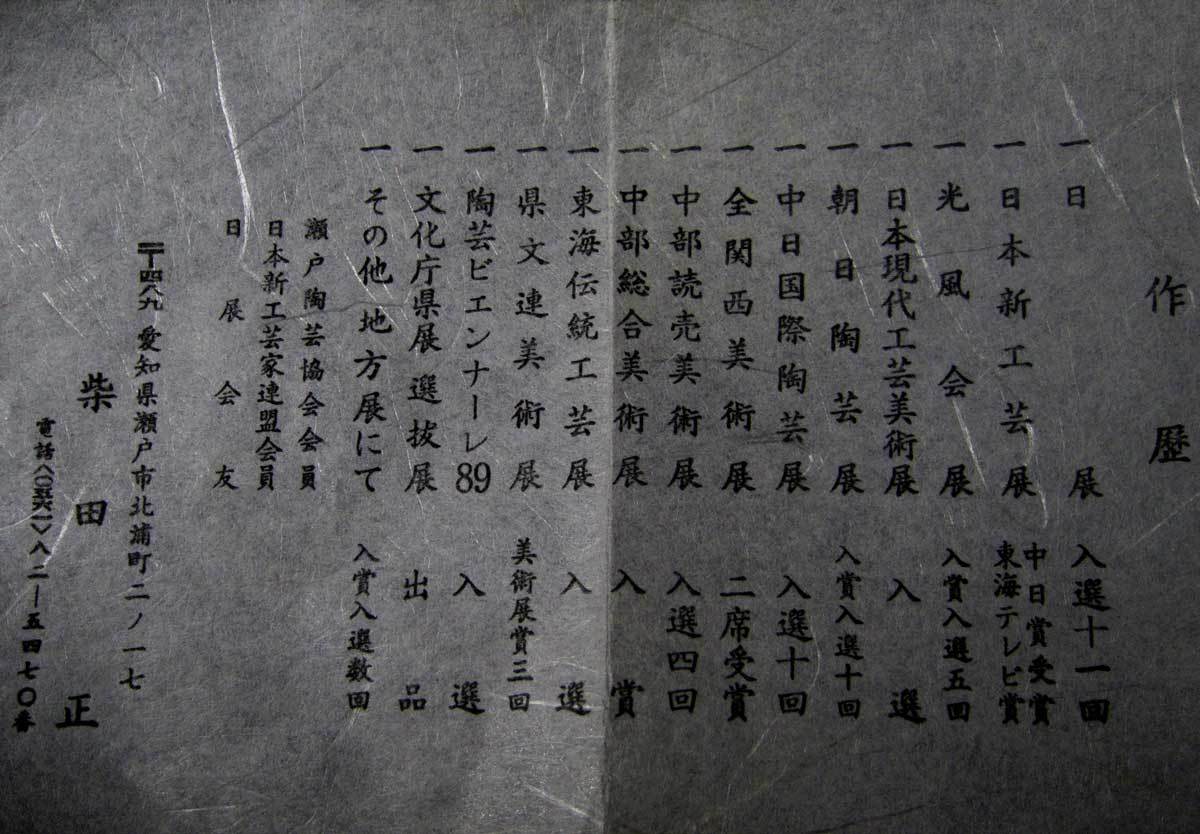 作歴
一 日展 入選十一回
一 日本新工芸展 中日賞受賞
東海テレビ賞
一 光風会展 入賞入選五回
一 日本現代工芸美術展 入選
一 朝日陶芸展 入賞入選十回
一 中日国際陶芸展 入選十回
一 全関西美術展 二席受賞
一 中部読売美術展 入選四回
一 中部総合美術展 入賞
一 東海伝統工芸展 入選
一 県文連美術展 美術展賞三回
一 陶芸ビエンナーレ89 入選
一 文化庁県展選抜展 出品
一 その他地方展にて 入賞入選数回
瀬戸陶芸協会会員
日本新工芸家連盟会員
日展会友
〒四八九 愛知県瀬戸市北浦町二ノ一七
柴田正
電話〈〇五六一〉八二―五四七〇番